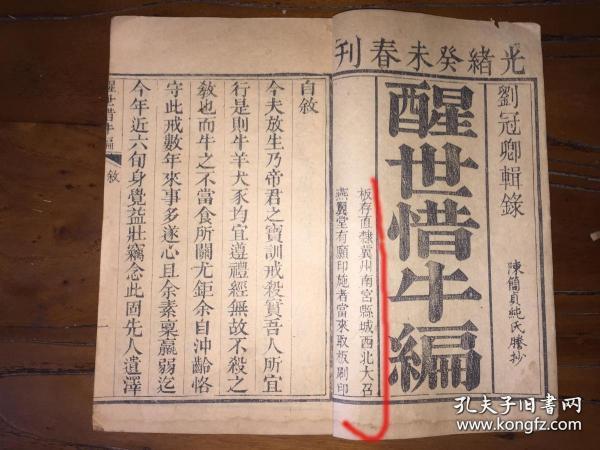 光緒癸未春刊
劉冠卿輯錄
陳簡貞純氏謄抄
醒世惜牛編
板存直隸冀州南宮縣城西北大召
燕翼堂有願印施者當來取板刷印
自敘
今夫放生乃帝君之寶訓戒殺實吾人所宜
行是則牛羊犬豕均宜遵禮經無故不殺之
敎也而牛之不當食所關尤鉅余自沖齡恪
守此戒數年來事多遂心且余素稟羸弱迄
今年近六旬身覺益壯竊念此固先人遺澤
醒世惜牛編
敘
孔夫子旧书网
www.kongfz.com